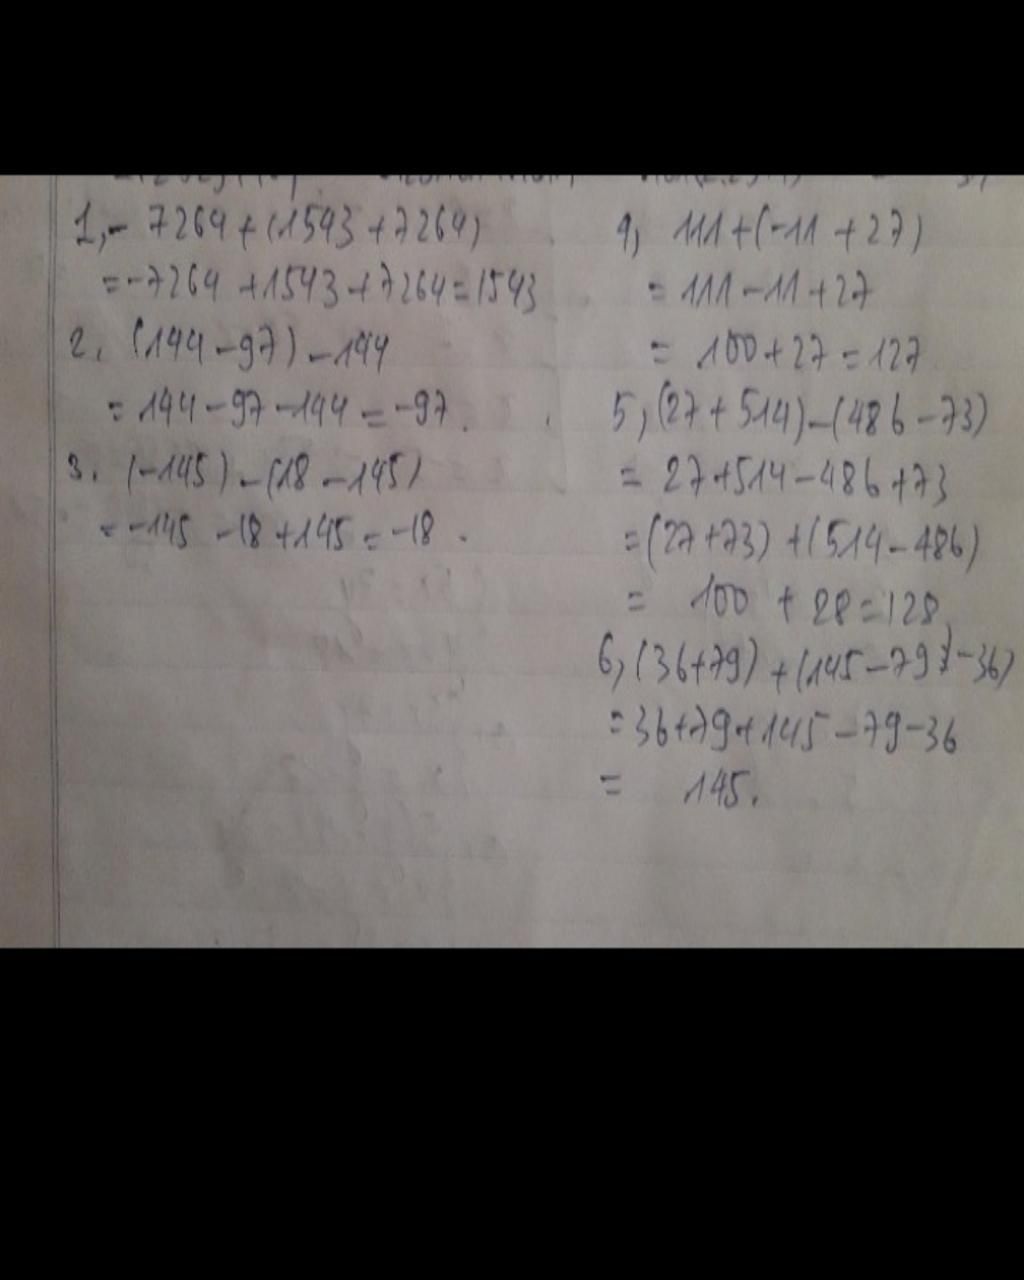 1,- 7264+(1543+7264)
=-7264+1543+7264=1543
2. (144-97)-144
= 144-97-144=-97.
3. (-145)-(18-145)
= -145-18+145=-18.
4, 111+(-11+27)
= 111-11+27
= 100+27=127
5,(27+514)-(486-73)
= 27+514-486+73
=(27+73)+(514-486)
= 100 + 28=128
6,(36+79)+(145-79-36)
=36+79+145-79-36
= 145.